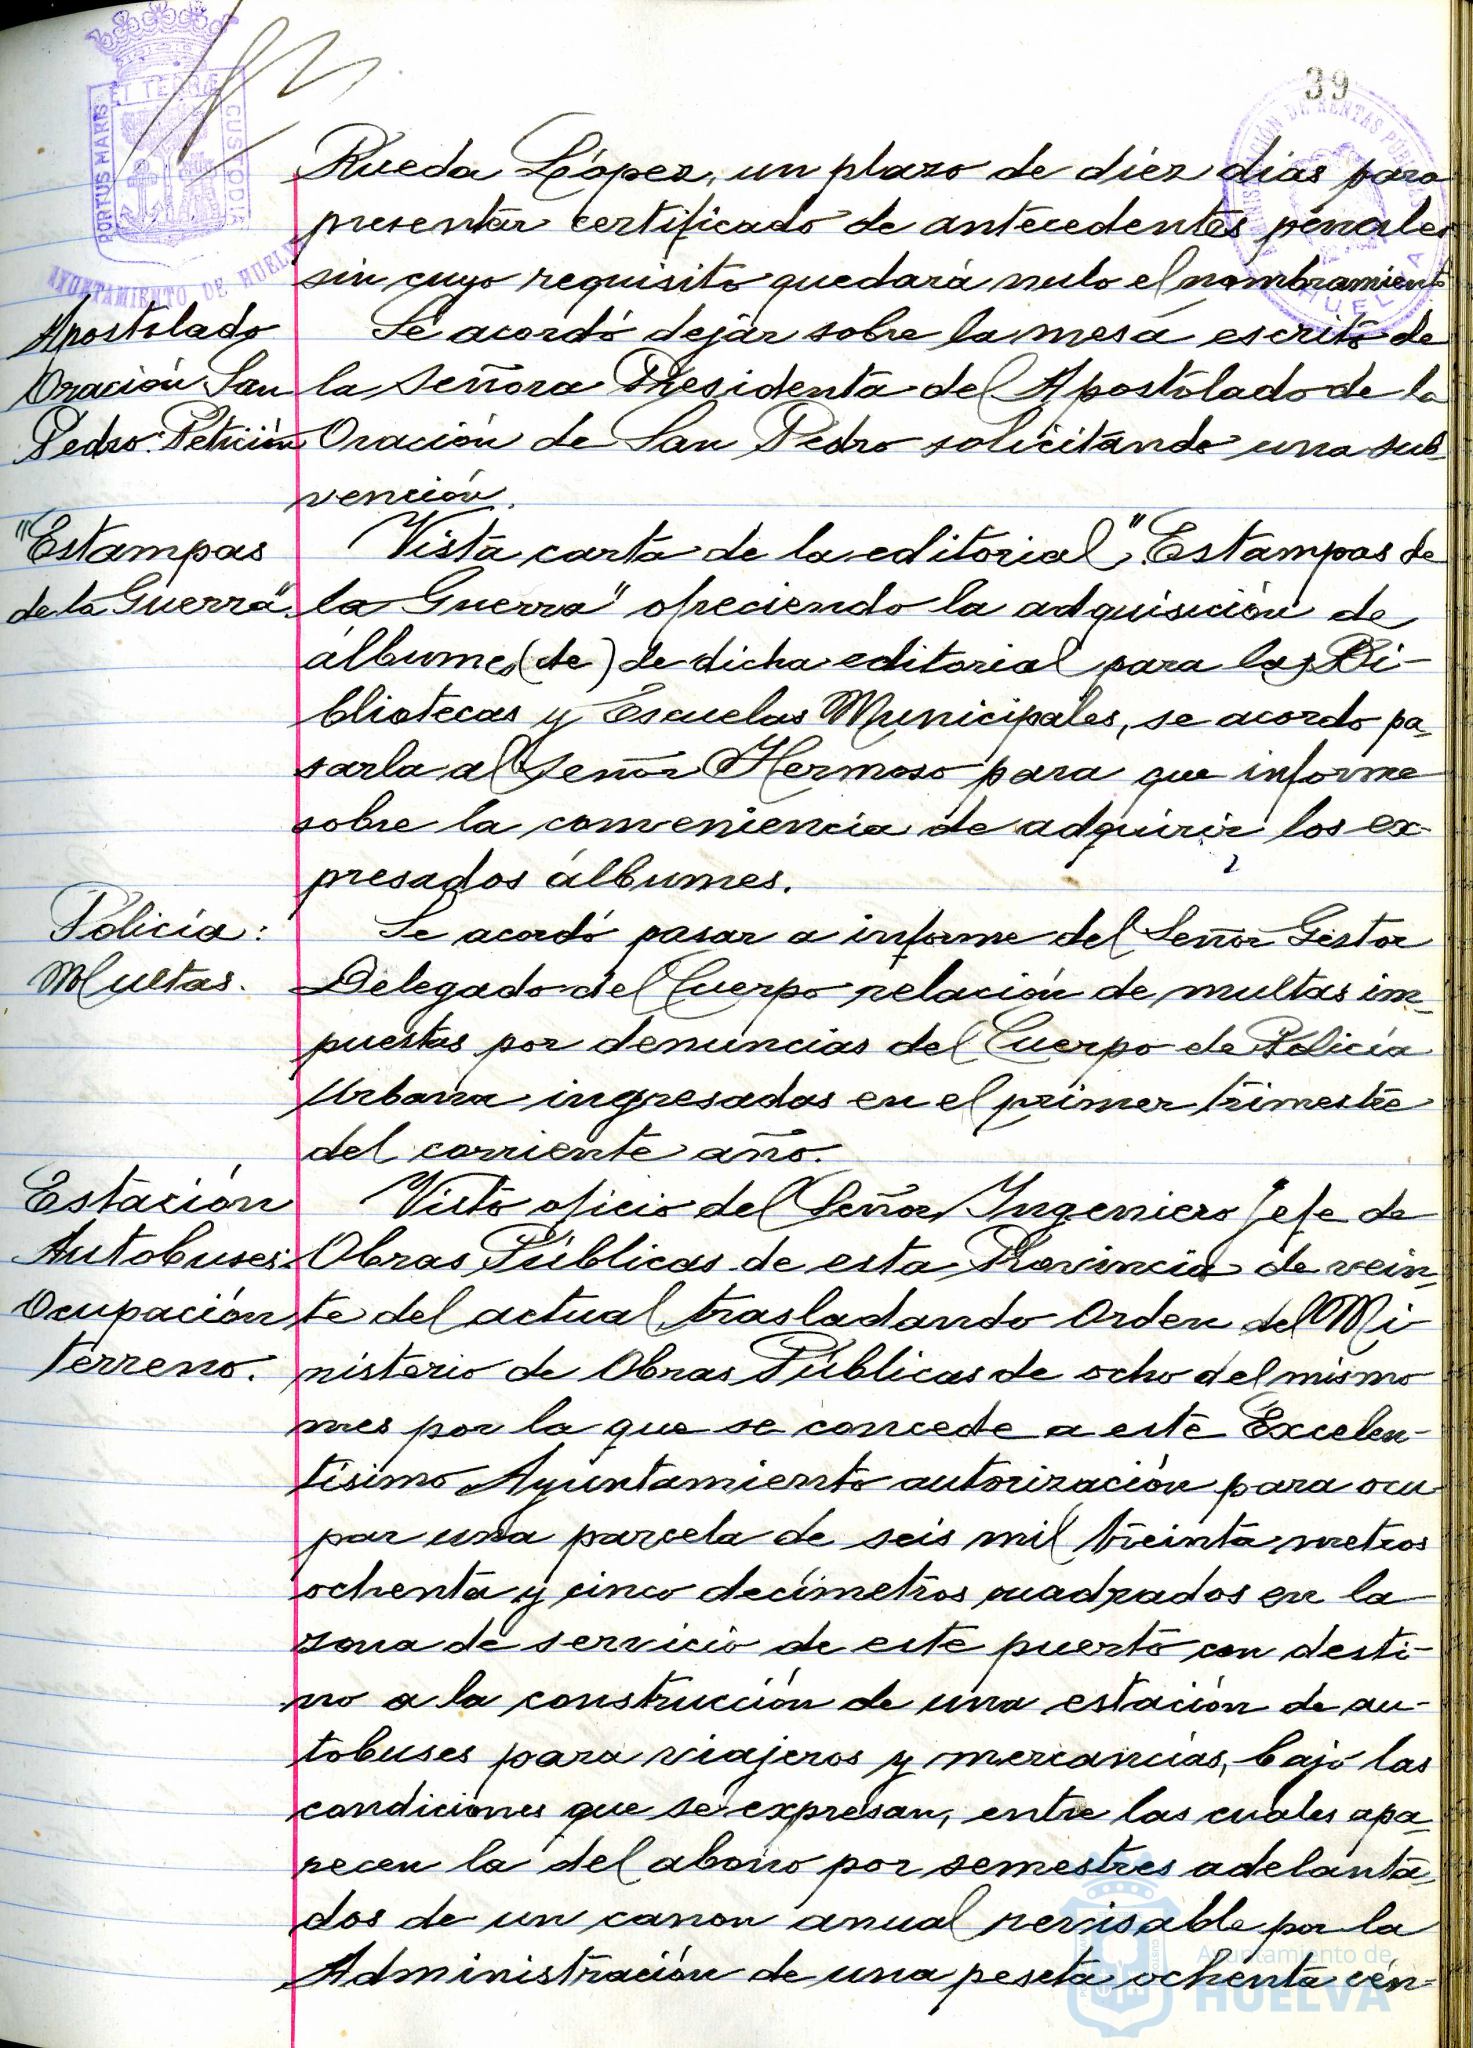 39
PORTUS MARIS ET TERRÆ CUSTODIA
AYUNTAMIENTO DE HUELVA
Rueda López, un plazo de diez dias para
presentar certificado de antecedentes penales
sin cuyo requisito quedará nulo el nombramiento
Apostolado
Oración San
Pedro: Petición
Se acordó dejar sobre la mesa escrito de
la Señora Presidenta del Apostolado de la
Oración de San Pedro solicitando una sub-
vención.
"Estampas
de la Guerra"
Vista carta de la editorial "Estampas de
la Guerra" ofreciendo la adquisición de
álbumes (de) de dicha editorial para las Bi-
bliotecas y Escuelas Municipales, se acordo pa-
sarla al Señor Hermoso para que informe
sobre la conveniencia de adquirir los ex-
presados álbumes.
Policía:
Multas.
Se acordó pasar a informe del Señor Gestor
Delegado del Cuerpo relación de multas im-
puestas por denuncias del Cuerpo de Policía
Urbana ingresadas en el primer trimestre
del corriente año.
Estación
Autobuses:
Ocupación
terreno.
Visto oficio del Señor Ingeniero Jefe de
Obras Públicas de esta Provincia de vein-
te del actual, trasladando Orden del Mi
nisterio de Obras Públicas de ocho del mismo
mes por la que se concede a este Excelen-
tísimo Ayuntamiento autorización para ocu
par una parcela de seis mil treinta metros
ochenta y cinco decímetros cuadrados en la
zona de servicio de este puerto con desti-
no a la construcción de una estación de au-
tobuses para viajeros y mercancias, bajo las
condiciones que se expresan, entre las cuales apa-
recen la del abono por semestres adelanta-
dos de un canon anual revisable por la
Administración de una peseta ochenta cén-
Ayuntamiento de
HUELVA